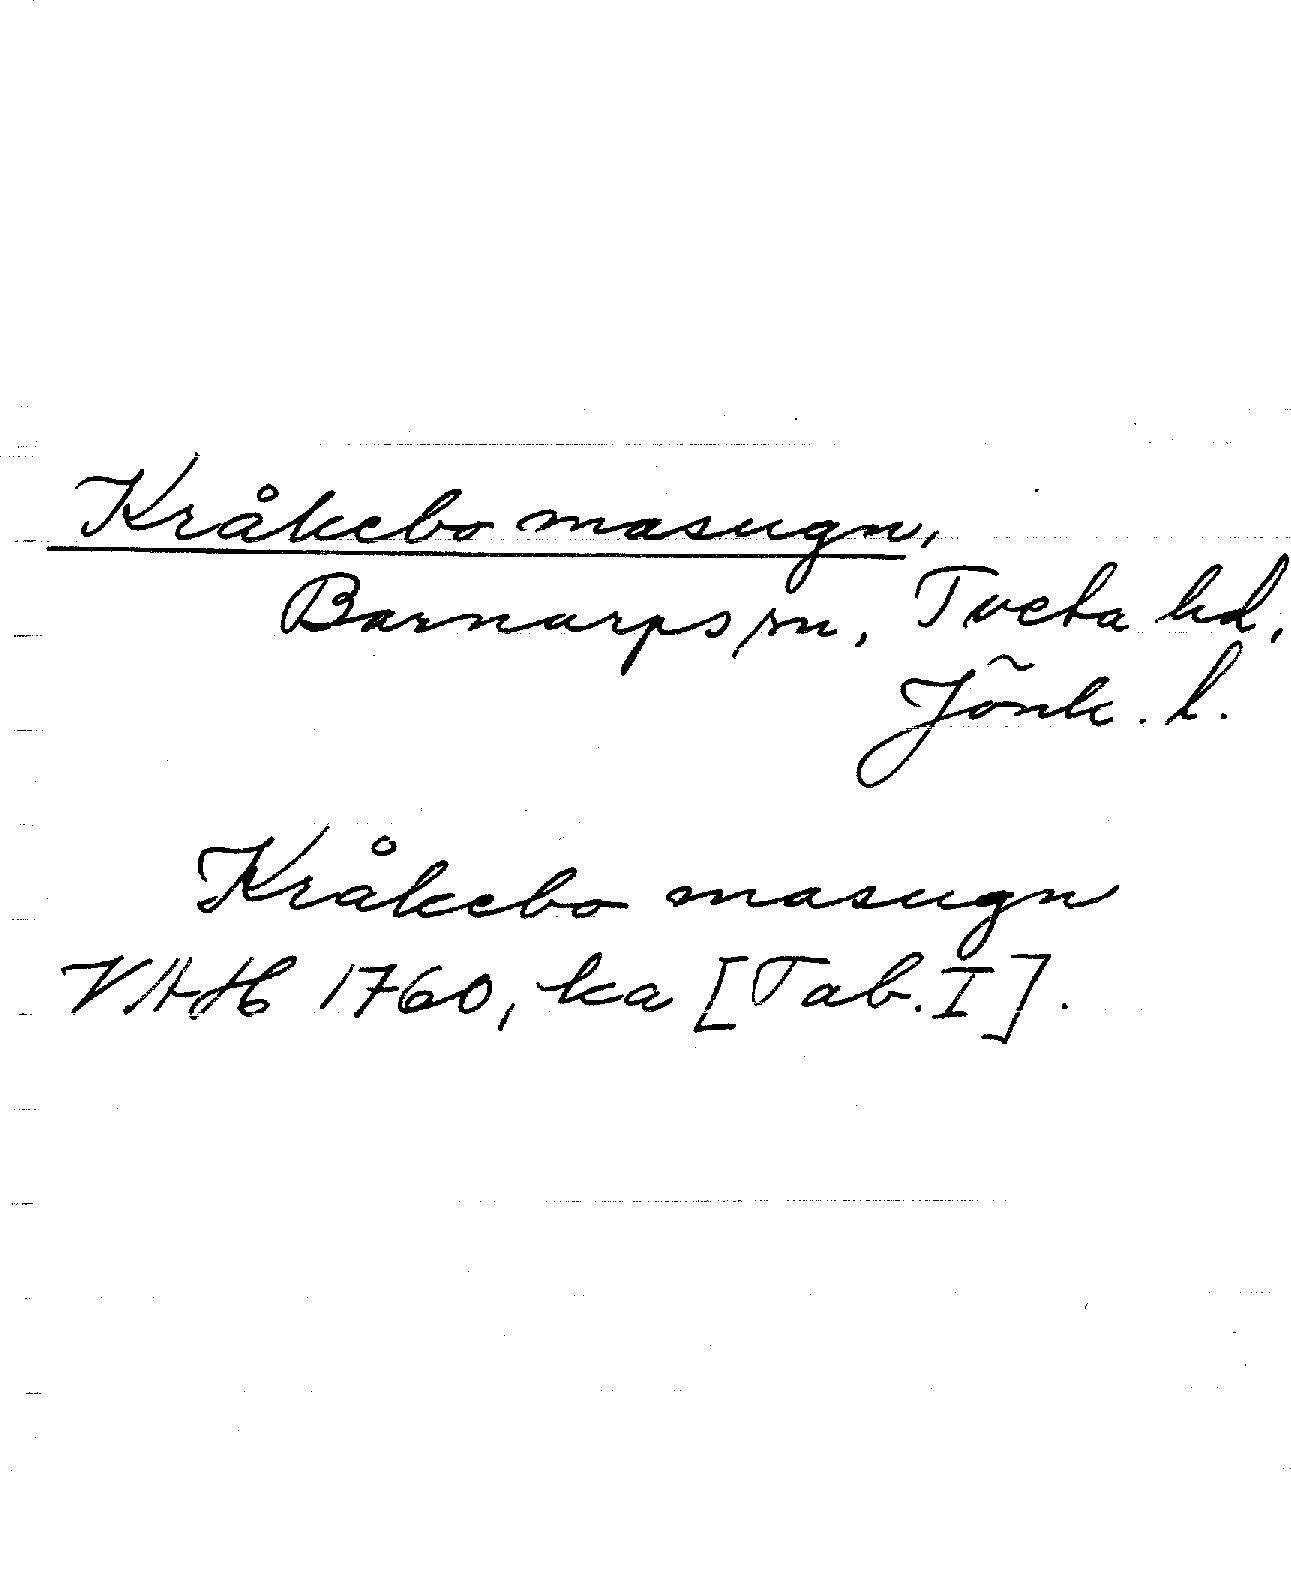 Kråkebo masugn,
Barnarps sn, Tveta hd,
Jönk. l.
Kråkebo masugn
VAH 1760, ka [Tab. I].